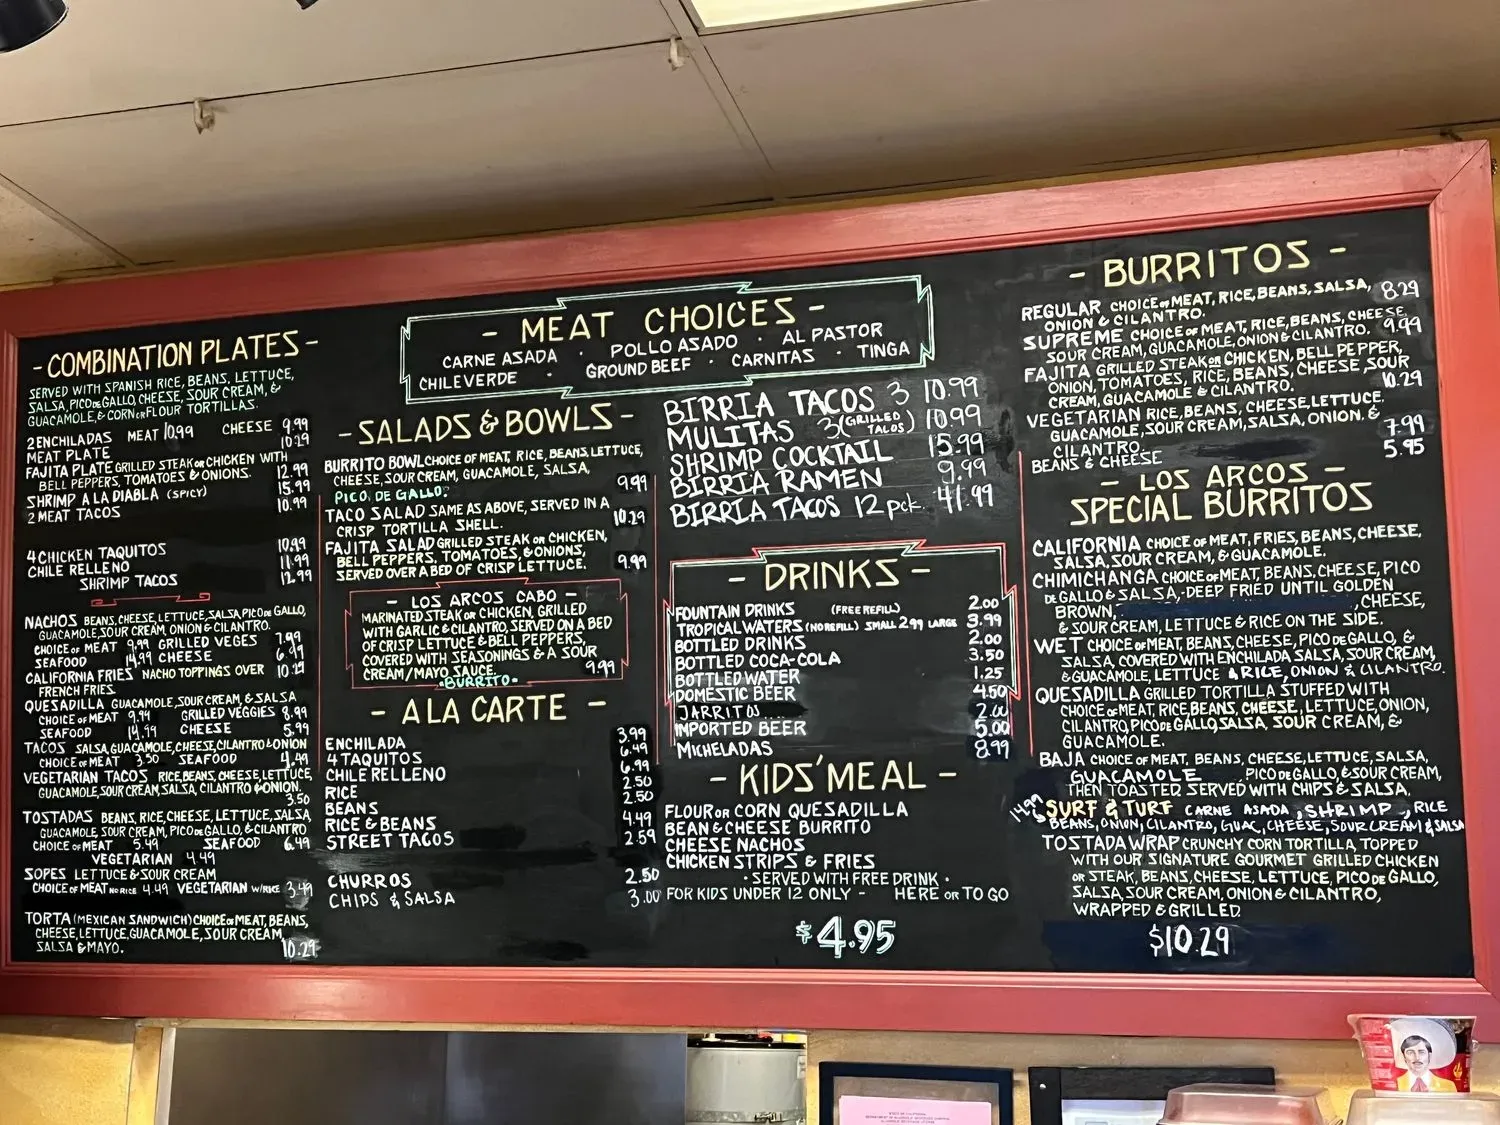 - COMBINATION PLATES -
SERVED WITH SPANISH RICE, BEANS, LETTUCE,
SALSA, PICO DE GALLO, CHEESE, SOUR CREAM, &
GUACAMOLE, & CORN OR FLOUR TORTILLAS.
2 ENCHILADAS MEAT 10.99 CHEESE 9.99
MEAT PLATE 10.29
FAJITA PLATE GRILLED STEAK OR CHICKEN WITH
BELL PEPPERS, TOMATOES & ONIONS. 12.99
SHRIMP A LA DIABLA (SPICY) 15.99
2 MEAT TACOS 10.99
4 CHICKEN TAQUITOS 10.99
CHILE RELLENO 11.99
SHRIMP TACOS 12.99
NACHOS BEANS, CHEESE, LETTUCE, SALSA, PICO DE GALLO,
GUACAMOLE, SOUR CREAM, ONION & CILANTRO.
CHOICE OF MEAT 9.99 GRILLED VEGES 7.99
SEAFOOD 14.99 CHEESE 6.99
CALIFORNIA FRIES NACHO TOPPINGS OVER 10.29
FRENCH FRIES
QUESADILLA GUACAMOLE, SOUR CREAM, & SALSA
CHOICE OF MEAT 9.94 GRILLED VEGGIES 8.99
SEAFOOD 14.99 CHEESE 5.99
TACOS SALSA, GUACAMOLE, CHEESE, CILANTRO & ONION
CHOICE OF MEAT 3.50 SEAFOOD 4.99
VEGETARIAN TACOS RICE, BEANS, CHEESE, LETTUCE,
GUACAMOLE, SOUR CREAM, SALSA, CILANTRO & ONION.
3.50
TOSTADAS BEANS, RICE, CHEESE, LETTUCE, SALSA,
GUACAMOLE, SOUR CREAM, PICO DE GALLO, & CILANTRO
CHOICE OF MEAT 5.49 SEAFOOD 6.49
VEGETARIAN 4.49
SOPES LETTUCE & SOUR CREAM
CHOICE OF MEAT NO RICE 4.49 VEGETARIAN W/RICE 3.49
TORTA (MEXICAN SANDWICH) CHOICE OF MEAT, BEANS,
CHEESE, LETTUCE, GUACAMOLE, SOUR CREAM,
SALSA & MAYO. 10.29
- MEAT CHOICES -
CARNE ASADA · POLLO ASADO · AL PASTOR
CHILE VERDE · GROUND BEEF · CARNITAS · TINGA
- SALADS & BOWLS -
BURRITO BOWL CHOICE OF MEAT, RICE, BEANS, LETTUCE,
CHEESE, SOUR CREAM, GUACAMOLE, SALSA,
PICO DE GALLO. 9.99
TACO SALAD SAME AS ABOVE, SERVED IN A
CRISP TORTILLA SHELL. 10.29
FAJITA SALAD GRILLED STEAK OR CHICKEN,
BELL PEPPERS, TOMATOES, & ONIONS,
SERVED OVER A BED OF CRISP LETTUCE. 9.99
- LOS ARCOS CABO -
MARINATED STEAK OR CHICKEN, GRILLED
WITH GARLIC & CILANTRO, SERVED ON A BED
OF CRISP LETTUCE & BELL PEPPERS,
COVERED WITH SEASONINGS & A SOUR
CREAM/MAYO SAUCE. 9.99
• BURRITO •
- A LA CARTE -
ENCHILADA 3.99
4 TAQUITOS 6.49
CHILE RELLENO 6.99
RICE 2.50
BEANS 2.50
RICE & BEANS 4.49
STREET TACOS 2.59
CHURROS 2.50
CHIPS & SALSA 3.00
BIRRIA TACOS 3 10.99
MULITAS 3 (GRILLED TACOS) 10.99
SHRIMP COCKTAIL 15.99
BIRRIA RAMEN 9.99
BIRRIA TACOS 12 pck. 41.99
- DRINKS -
FOUNTAIN DRINKS (FREE REFILL) 2.00
TROPICAL WATERS (NO REFILL) SMALL 2.99 LARGE 3.99
BOTTLED DRINKS 2.00
BOTTLED COCA-COLA 3.50
BOTTLED WATER 1.25
DOMESTIC BEER 4.50
JARRITOS 2.00
IMPORTED BEER 5.00
MICHELADAS 8.99
- KIDS' MEAL -
FLOUR OR CORN QUESADILLA
BEAN & CHEESE BURRITO
CHEESE NACHOS
CHICKEN STRIPS & FRIES
• SERVED WITH FREE DRINK •
FOR KIDS UNDER 12 ONLY - HERE OR TO GO
$4.95
- BURRITOS -
REGULAR CHOICE OF MEAT, RICE, BEANS, SALSA, 8.29
ONION & CILANTRO.
SUPREME CHOICE OF MEAT, RICE, BEANS, CHEESE,
SOUR CREAM, GUACAMOLE, ONION & CILANTRO. 9.99
FAJITA GRILLED STEAK OR CHICKEN, BELL PEPPER,
ONION, TOMATOES, RICE, BEANS, CHEESE, SOUR
CREAM, GUACAMOLE & CILANTRO. 10.29
VEGETARIAN RICE, BEANS, CHEESE, LETTUCE,
GUACAMOLE, SOUR CREAM, SALSA, ONION, &
CILANTRO. 7.99
BEANS & CHEESE 5.95
- LOS ARCOS -
SPECIAL BURRITOS
CALIFORNIA CHOICE OF MEAT, FRIES, BEANS, CHEESE,
SALSA, SOUR CREAM, & GUACAMOLE.
CHIMICHANGA CHOICE OF MEAT, BEANS, CHEESE, PICO
DE GALLO & SALSA, - DEEP FRIED UNTIL GOLDEN
BROWN, , CHEESE,
& SOUR CREAM, LETTUCE & RICE ON THE SIDE.
WET CHOICE OF MEAT, BEANS, CHEESE, PICO DE GALLO, &
SALSA, COVERED WITH ENCHILADA SALSA, SOUR CREAM,
& GUACAMOLE, LETTUCE & RICE, ONION & CILANTRO.
QUESADILLA GRILLED TORTILLA STUFFED WITH
CHOICE OF MEAT, RICE, BEANS, CHEESE, LETTUCE, ONION,
CILANTRO, PICO DE GALLO, SALSA, SOUR CREAM, &
GUACAMOLE.
BAJA CHOICE OF MEAT, BEANS, CHEESE, LETTUCE, SALSA,
GUACAMOLE PICO DE GALLO, & SOUR CREAM,
THEN TOASTED. SERVED WITH CHIPS & SALSA.
14.99 SURF & TURF CARNE ASADA, SHRIMP, RICE
BEANS, ONION, CILANTRO, GUAC, CHEESE, SOUR CREAM & SALSA
TOSTADA WRAP CRUNCHY CORN TORTILLA, TOPPED
WITH OUR SIGNATURE GOURMET GRILLED CHICKEN
OR STEAK, BEANS, CHEESE, LETTUCE, PICO DE GALLO,
SALSA, SOUR CREAM, ONION & CILANTRO,
WRAPPED & GRILLED.
$10.29